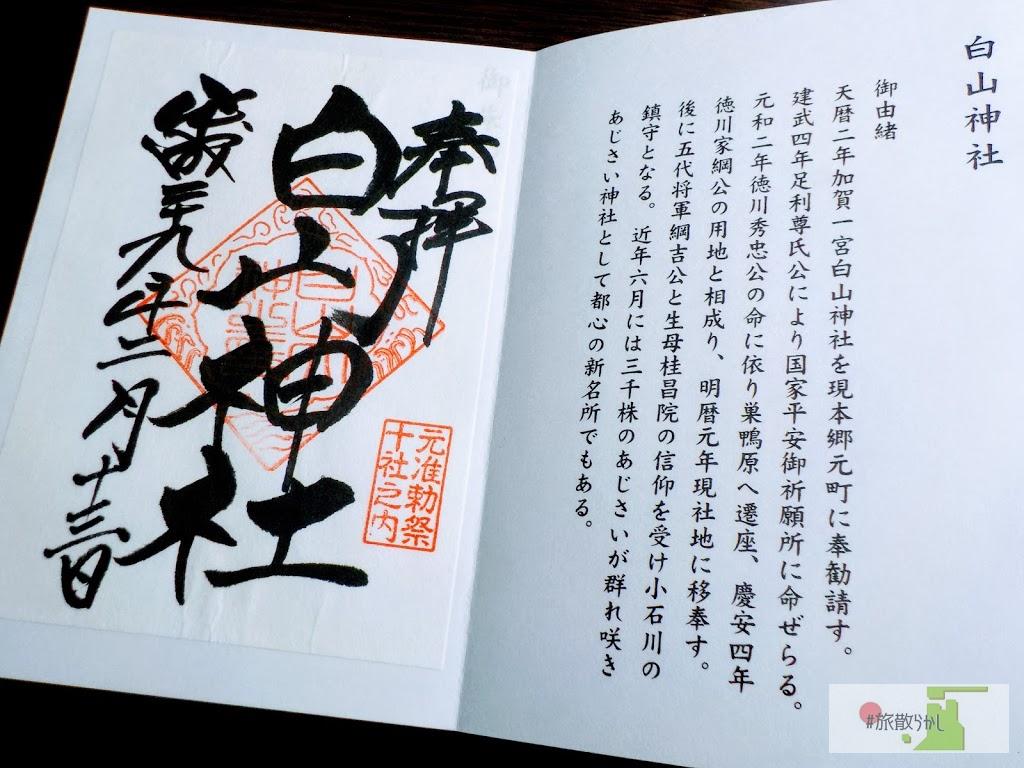 白山神社
御由緒
天暦二年加賀一宮白山神社を現本郷元町に奉勧請す。
建武四年足利尊氏公により国家平安御祈願所に命ぜらる。
元和二年徳川秀忠公の命に依り巣鴨原へ遷座、慶安四年
徳川家綱公の用地と相成り、明暦元年現社地に移奉す。
後に五代将軍綱吉公と生母桂昌院の信仰を受け小石川の
鎮守となる。近年六月には三千株のあじさいが群れ咲き
あじさい神社として都心の新名所でもある。
奉拝
元准勅祭
十社之内
白山神社
九年十二月十三日
#旅散らかし